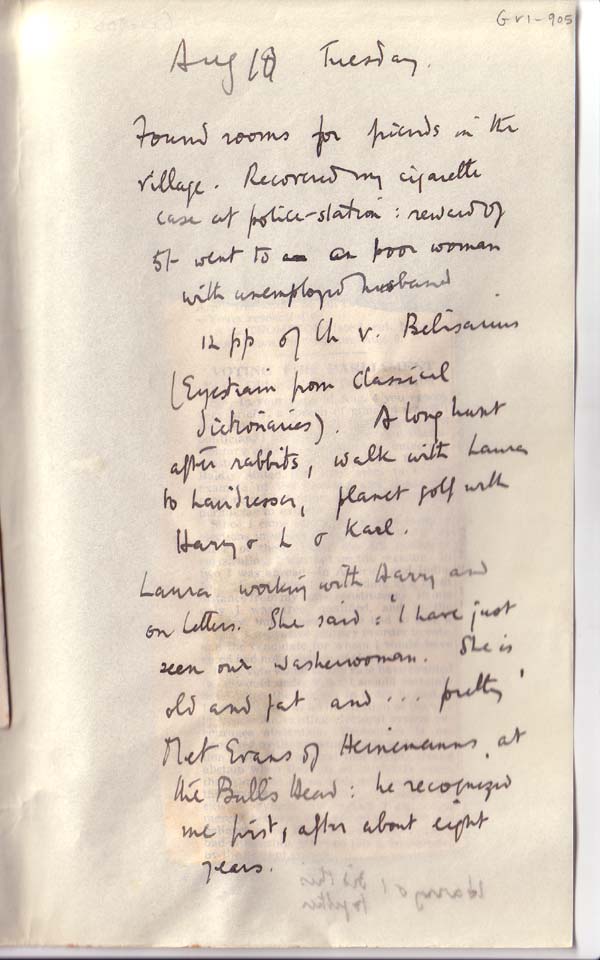 GV1-905
Aug 18 Tuesday.
Found rooms for friends in the
village. Recovered my cigarette
case at police-station: reward of
5/- went to a poor woman
with unemployed husband
12 pp of Ch V. Belisarius
(Eyestrain from Classical
dictionaries). A long hunt
after rabbits, walk with Laura
to hairdresser, planet golf with
Harry & L & Karl.
Laura working with Harry and
on letters. She said: 'I have just
seen our washerwoman. She is
old and fat and ... pretty'
Met Evans of Heinemanns at
the Bull's Head: he recognized
me first, after about eight
years.